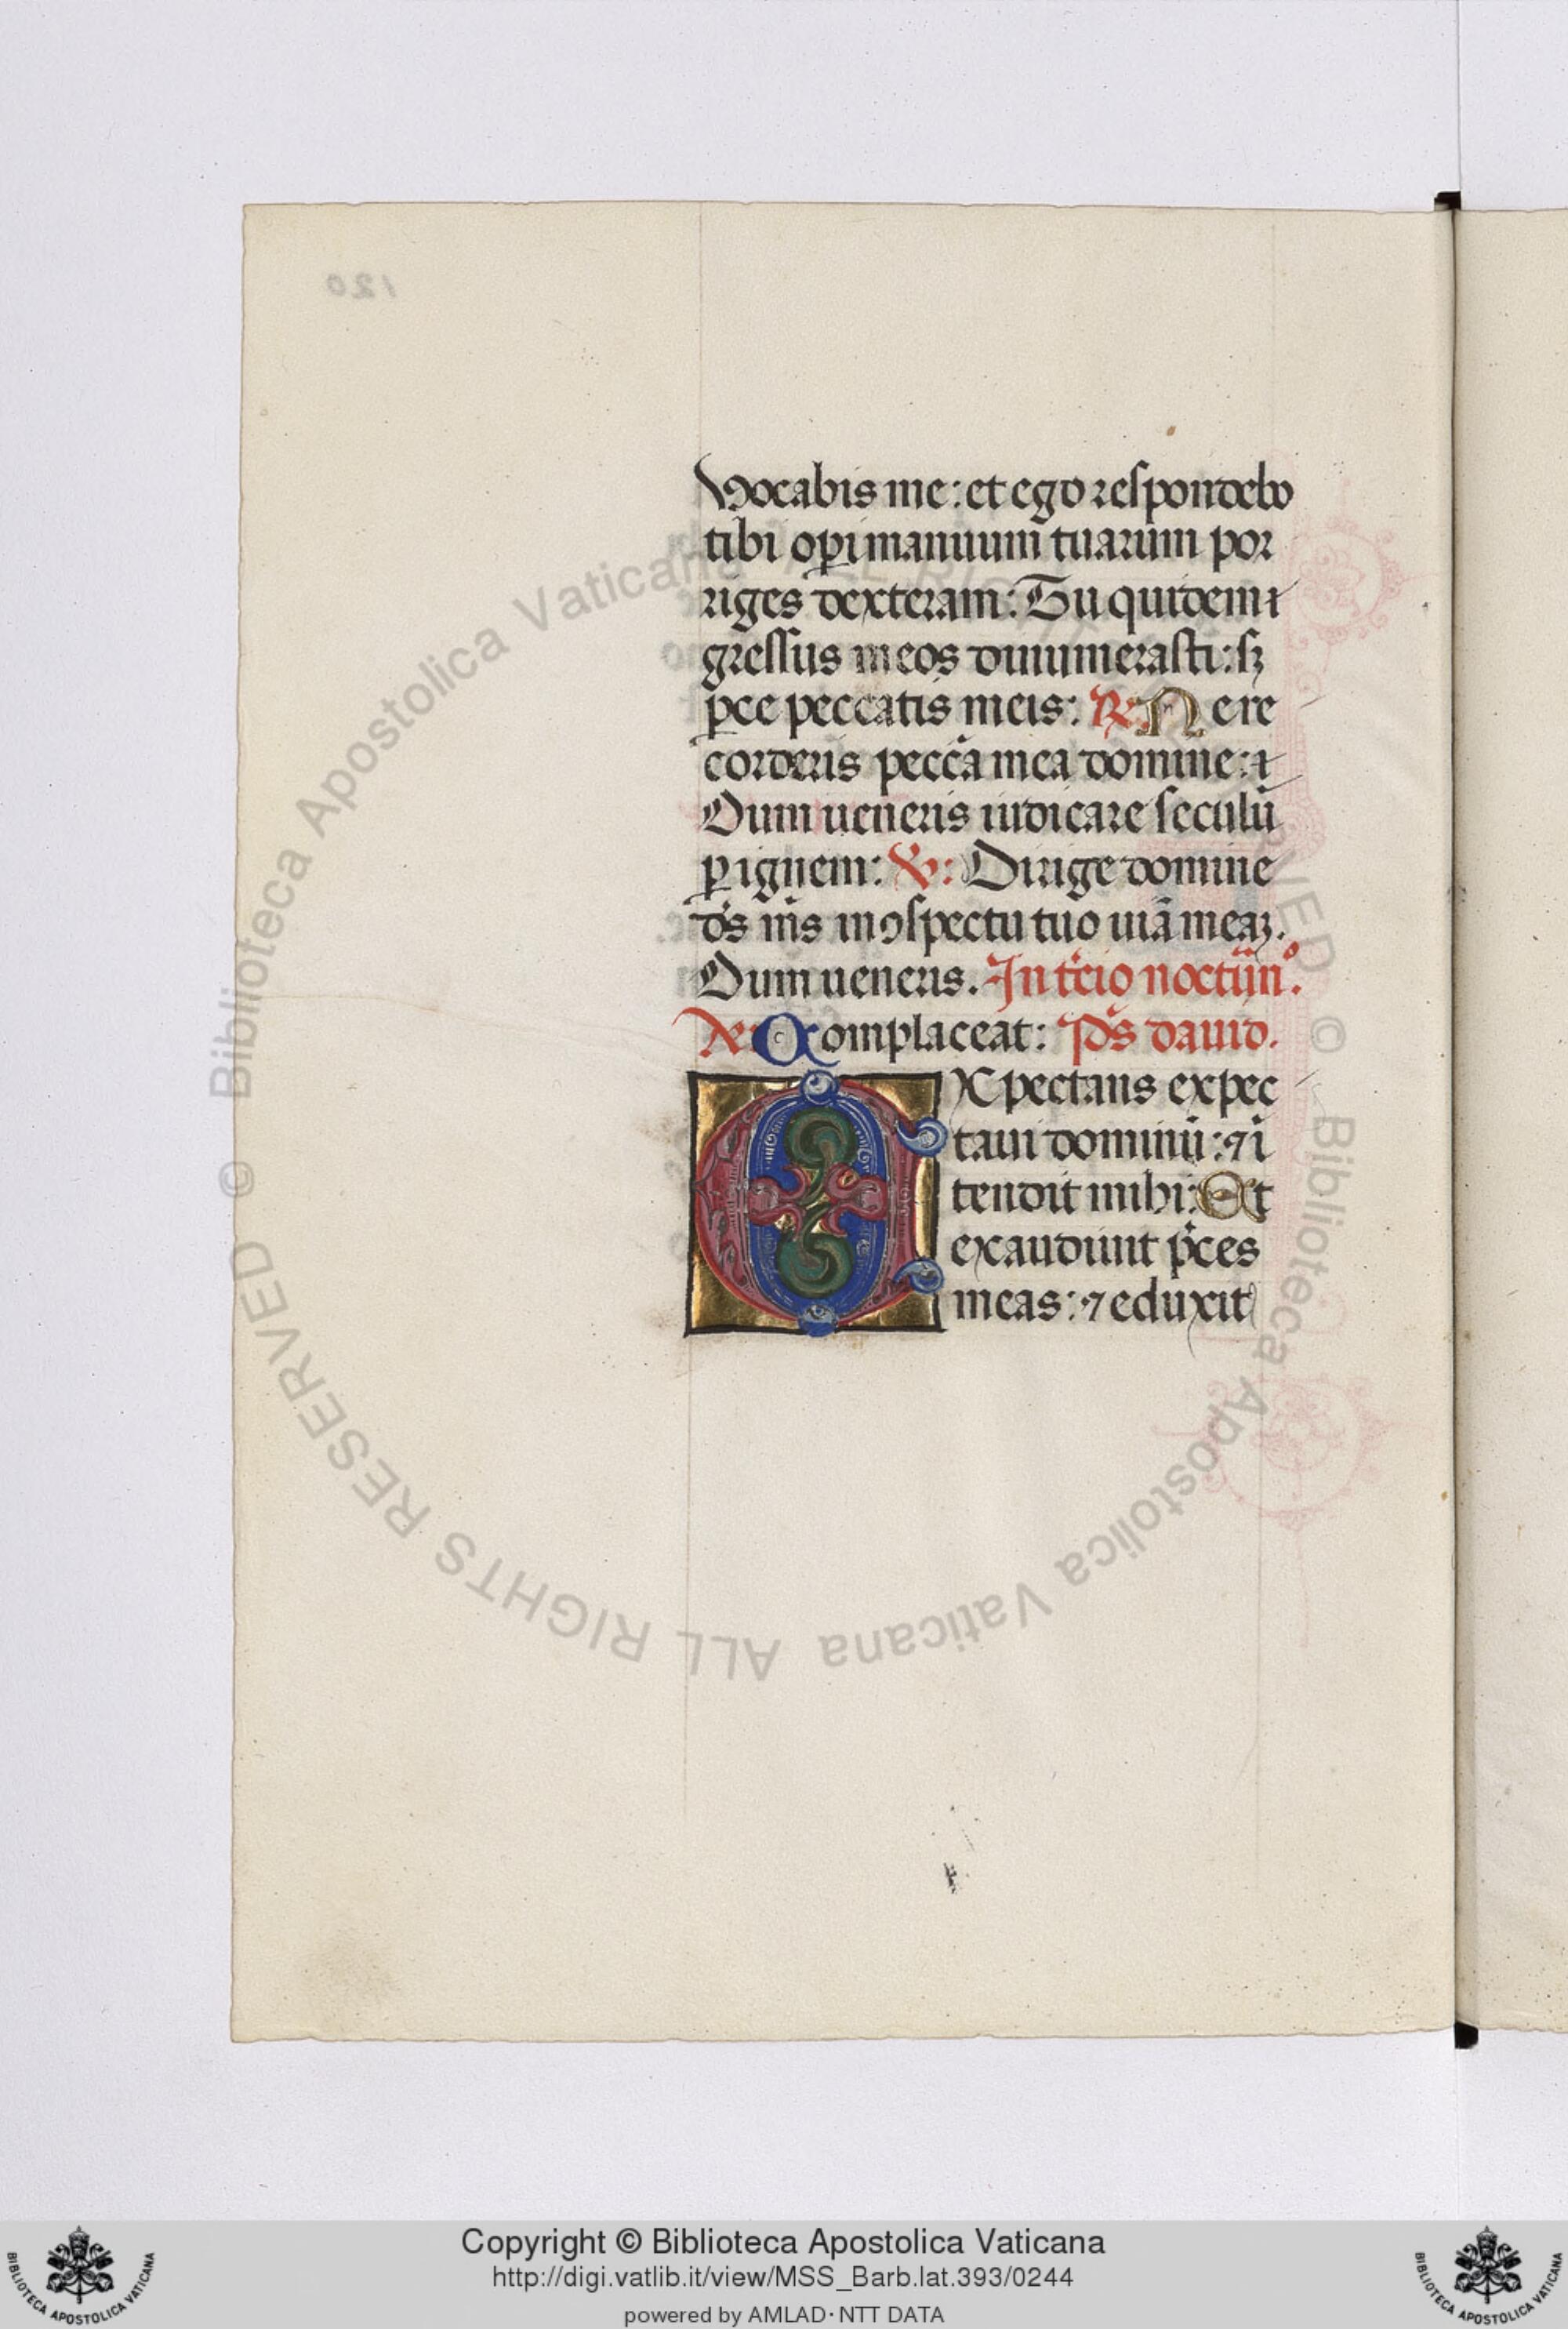 120
Vocabis me: et ego respondebo
tibi op̱i manuum tuarum por
riges dexteram: Tu quidem ⁊
gressus meos dinumerasti: sꝫ
ꝑce peccatis meis: ℟. Ne re
corderis pecc̄a mea domine: ⁊
Dum ueneris iudicare seculū
ꝑ ignem: ℣: Dirige domine
ds̄ ms̄ in ꝯspectu tuo uiā meaꝫ.
Dum ueneris. In t̄cio noct̄ūn°.
Complaceat: Ps̄ dauid.
EXpectans expec
taui dominū: ⁊ ī
tendit mihi: Et
exaudiuit p̄ces
meas: ⁊ eduxit
© Biblioteca Apostolica Vaticana ALL RIGHTS RESERVED © Biblioteca Apostolica Vaticana ALL RIGHTS RESERVED
Copyright © Biblioteca Apostolica Vaticana
http://digi.vatlib.it/view/MSS_Barb.lat.393/0244
powered by AMLAD·NTT DATA
BIBLIOTECA APOSTOLICA VATICANA
BIBLIOTECA APOSTOLICA VATICANA